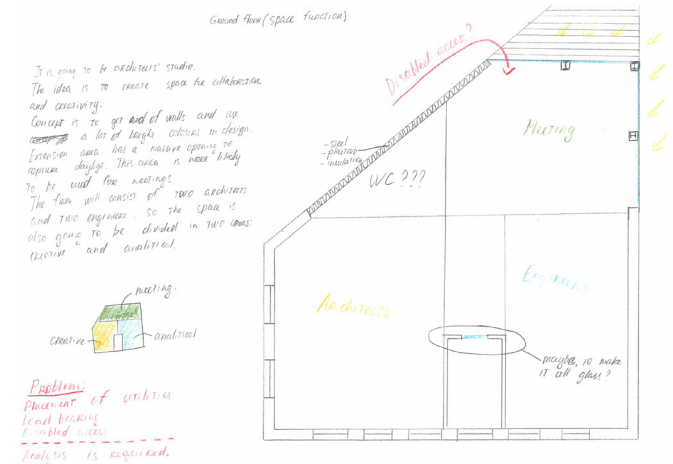 Ground floor (space function)
It is going to be architects' studio.
The idea is to create space for collaboration
and creativity.
Concept is to get rid of walls and use
a lot of bright colours in design.
Extension area has a massive opening to
capture daylight. This area is more likely
to be used for meetings.
The firm will consist of two architects
and two engineers, so the space is
also going to be divided in two areas:
creative and analitical.
meeting.
creative
analitical
Problem:
Placement of utilities
Load bearing
Disabled access
Analysis is required.
Disabled access?
- steel
- insulation
WC???
Meeting
Architects
Engineers
maybe, to make
it all glass?